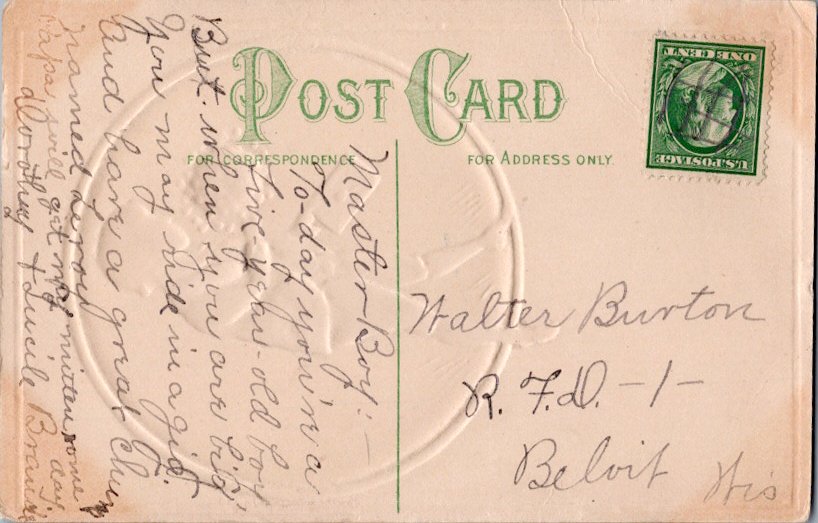 POST CARD
FOR CORRESPONDENCE
FOR ADDRESS ONLY.
ONE CENT
U.S. POSTAGE
Master Boy:—
To-day you're a
five-year-old boy
But when you are big,
You may ride in a gig.
And have a great chum
named Leroy
Papa will get my mitten some day
Dorothey & Lucile
Walter Burton
R. F. D. -1-
Beloit Wis